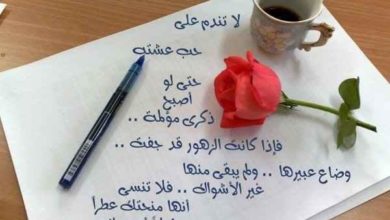 لا تندم على
حب عشته
حتى لو
أصبح
ذكرى مؤلمة ..
فإذا كانت الزهور قد جفت ..
وضاع عبيرها .. ولم يبقى منها
غير الأشواك .. فلا تنسى
انها منحتك عطرا